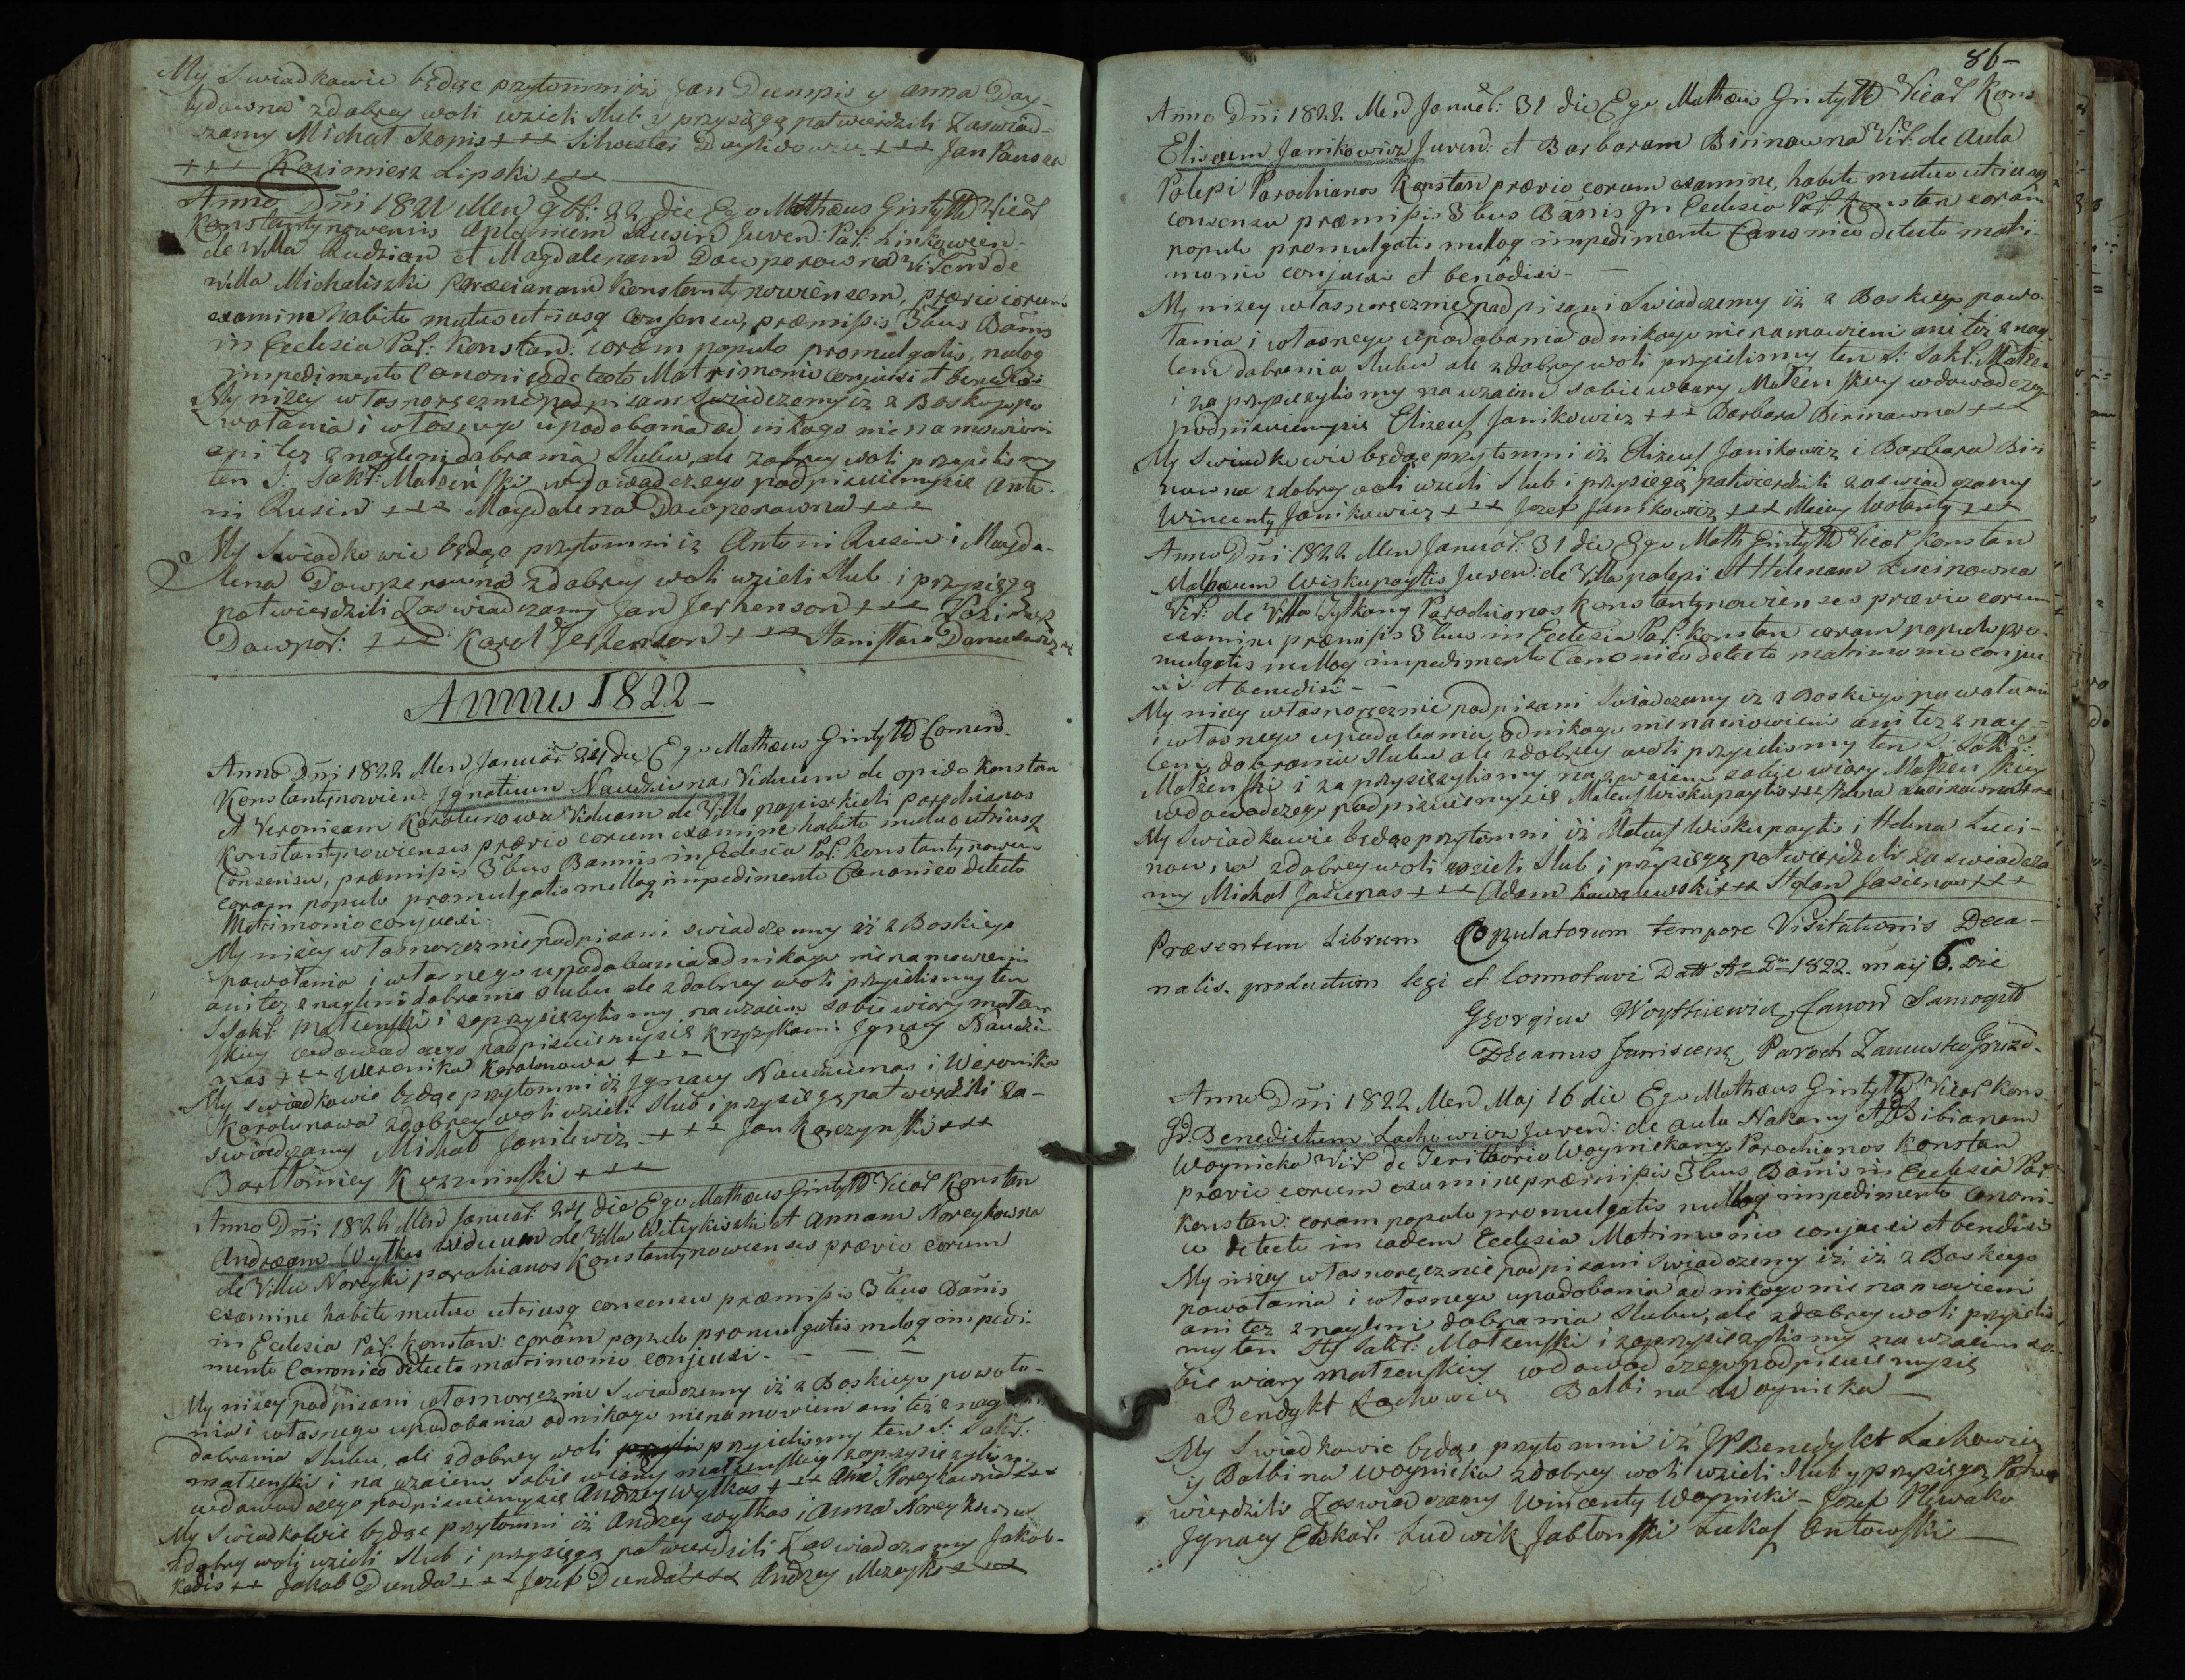 My Swiadkowie będąc przytomni iż Jan Dumpis y Anna Day-
lydowna z dobrey woli wzieli Slub y przysięgą patwierdzili Zaswiad-
zamy Michał Skopis +++ Silwester Daylidowicz +++ Jan Pauza
+++ Kazimierz Lipski +++
Anno Dni 1821 Men 9br: 22 die Ego Mathæus Gintyłło Vicar
Konstantynowensis Antonium Rusin Juven: Par: Linkowien-
de Villa Rudzian et Magdalenam Dowperowna Virem de
villa Michaliszki Paræcianam Konstantynowiensem, prævio eorum
examine habito mutuo utriusq Consensu, præmissis 3bus Bannis
in Ecclesia Par: Konstan: coram populo promulgatis, nulloq
impedimento Canonico detecto Matrimonio conjunxi et benedixi
My niżey własnoręcznie podpisani Swiadczemy iż z Boskiego po
wołania i własnego upodobania od nikogo nie namowieni
ani też z naglenia dobrania Slubu, ale z dobrey woli przyielismy
ten S: Sakr: Małżeński w dowod czego podpisuiemysię Anto-
ni Rusin +++ Magdalena Dowperowna +++
My Swiadkowie będąc przytomni iż Antoni Rusin i Magda-
lena Dowperowna z dobrey woli wzieli Slub i przysięgą
patwierdzili Zaswiadczamy Jan Jerhenson +++ Kazimierz
Dowpor: +++ Karol Jerhenson +++ Stanisław
Annus 1822 -
Anno Dni 1822 Men Januar 24 die Ego Mathæus Gintyłło Comend.
Konstantynowien: Ignatium Naudziunas Viduum de opido Konstan
et Veronicam Karolunowa Viduam de Villa Parochianos
Konstantynowienses prævio eorum examine habito mutuo utriusq
Consensu, præmissis 3bus Bannis in Ecclesia Par: Konstantynowen
coram populo promulgatis nulloq impedimento Canonico detecto
Matrimonio conjunxi -
My niżey własnoręcznie podpisani swiadczemy iż z Boskiego
powołania i własnego upodobania od nikogo nie namowieni
ani też z naglenia dobrania Slubu ale z dobrey woli przyielismy ten
S Sakr: Małżenski i zaprzysięzylismy nawzaiem sobie wiary małżen
skiey w dowod czego podpisuiemysię Krzyżykami Ignacy Naudziu
nas +++ Weronika Karolunowa +++
My swiadkowie będąc przytomni iż Ignacy Naudziunas i Weronika
Karolunowa z dobrey woli wzieli Slub i przysięgą patwierdzili Za-
swiadczamy Michał Janilewiz +++ Jan Karczynski +++
Bartłomiey Kuzminski +++
Anno Dni 1822 Men Januar: 24 die Ego Mathæus Gintyłło Vicar Konstan
Andræam Wytkas Viduum de Villa et Annam Noreykowna
de Villa Noreyki parohianos Konstantynowienses prævio eorum
examine habito mutuo utriusq consensu præmissis 3bus Bannis
in Ecclesia Par: Konstan: coram populo promulgatis nuloq impedi-
mento Canonico detecto matrimonio conjunxi -
My niżey podpisani własnoręcznie Swiadczemy iż z Boskiego powoła-
nia i własnego upodobania od nikogo nienamowieni ani też z nagleni
dobrania Slubu, ale z dobrey woli przyielismy ten S: Sakr:
małżenski i na wzaiem sobie wiary małżenskiey zaprzysięzylismy
w dowod czego podpisuiemysię Andrzey Wytkas +++ Ana Noreykowna +++
My Swiadkowie będąc przytomni iż Andrzey Wytkas i Anna Noreykowna
z dobrey woli wzieli Slub i przysięgą patwierdzili Zaswiadczamy Jakob-
++ Jakob Dunda +++ Jozef Dunda +++ Andrzey Mizeyko +++
86-
Anno Dni 1822 Men Januar: 31 die Ego Mathæus Gintyłło Vicar Kons
Eliseum Janikowicz Juven: et Barbaram Birinowna Vir: de Aula
Polepi Parochianos Konstan prævio eorum examine, habito mutuo utriusq
consensu præmissis 3bus Bannis in Ecclesia Par: Konstan coram
populo promulgatis nulloq impedimento Canonico detecto matri-
monio conjunxi et benedixi -
My nizey własnoręcznie podpisani Swiadczemy iż z Boskiego powo-
łania i własnego upodobania od nikogo nie namowieni ani też z nag-
leni dobrania Slubu ale z dobrey woli przyielismy ten S: Sakr: Małżen
i zaprzysięzylismy na wzaiem sobie wiary Małżenskiey w dowod czego
podpisuiemysię Elizeusz Janikowicz +++ Barbara Birinowna +++
My Swiadkowie będąc przytomni iż Elizeusz Janikowiz i Barbara Biri
nowna z dobrey woli wzieli Slub i przysięgą patwierdzili zaswiadczamy
Wincenty Janikowicz +++ Jozef Janikowiz +++ Maciey +++
Anno Dni 1822 Men Januar: 31 die Ego Math Gintyłło Vicar Konstan
Mathæum Wiskupaytis Juven: de Villa polepi et Helenam Lucinowna
Vir: de Villa Parochianos Konstantynowienses prævio eorum
examine præmissis 3bus in Ecclesia Par: Konstan coram populo pro-
mulgatis nulloq impedimento Canonico detecto matrimonio conjun
xi et benedixi -
My niżey własnoręcznie podpisani Swiadczemy iż z Boskiego powołani
i własnego upodobania od nikogo nienamowieni ani też z nag-
leni dobrania Slubu ale z dobrey woli przyielismy ten S: Sakr:
Małżenski i zaprzysięzylismy na wzaiem sobie wiary Małżenskiey
w dowod czego podpisuiemysię Mateusz Wiskupaytis +++ Helena Lucinowna +++
My Swiadkowie będąc przytomni iż Mateusz Wiskupaytis i Helena Luci-
nowna z dobrey woli wzieli Slub i przysięgą patwierdzili zaswiadcza
my Michał Jasienas +++ Adam Kowalewski +++ Stefan Jasienow +++
Præsentem Librum Copulatorum tempore Visitationis Deca-
nalis. productum legi et connotavi Datt Ao Dni 1822. maij 6. die
Georgius Woytkiewicz, Canon Samogitt
Decanus Janiscens, Paroch Gruzd.
Anno Dni 1822 Men Maj 16 die Ego Mathæus Gintyłło Vicar Kons
Gd. Benedictum Lachowicz Juven: de aula Nakany et Balbibianam
Woynicka Vir de Teritorio Woyniekany Parochianos Konstan
prævio eorum examine præmissis 3bus Bannis in Ecclesia Par:
Konstan: coram populo promulgatis nulloq impedimento Canoni-
co detecto in eadem Ecclesia Matrimonio conjunxi et benedixi
My niżey własnoręcznie podpisani Swiadczemy iż iż z Boskiego
powołania i własnego upodobania od nikogo nie namowieni
ani też z nagleni dobrania Slubu, ale z dobrey woli przyielis
my ten Sty Sakr: Małżenski i zaprzysięzylismy na wzaiem so-
bie wiary małżenskiey w dowod czego podpisuiemysię
Bendykt Lachowicz Balbina Woynicka -
My Swiadkowie będąc przytomni iż JP Benedykt Lachowicz
y Balbina Woynicka z dobrey woli wzieli Slub y przysięgą Potwe
wierdzili Zaswiadczamy Wincenty Woynicki - Jozef Pliwako
Ignacy Ludwik Jabłonski Łukasz Antowski -